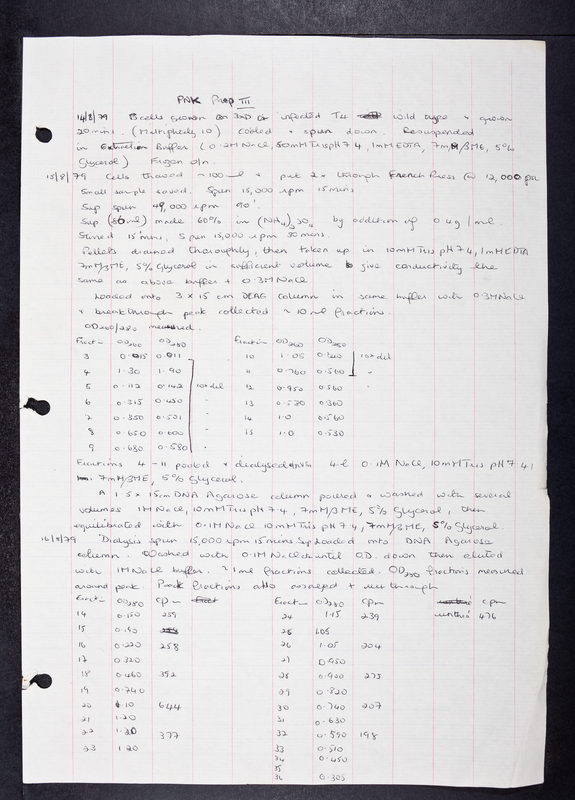 PNK Prep III
14/8/79 cells grown infected T4 wild type + grown
20 mins. (Multiplicity 10) cooled + spun down. Resuspended
in Extraction Buffer (0.2M NaCl, 50mM Tris pH 7.4, 1mM EDTA, 7mM βME, 5%
Glycerol) Frozen o/n.
15/8/79 Cells thawed ~100 ml + put 2x through French Press @ 12,000 psi
Small sample saved. Spun 15,000 rpm 15 mins
Sup spun 49,000 rpm 90'.
Sup (86 ml) made 60% in (NH4)2SO4 by addition of 0.4g/ml.
Stirred 15 mins, Spun 15,000 rpm 30 mins.
Pellets drained thoroughly, then taken up in 10mM Tris pH 7.4, 1mM EDTA
7mM βME, 5% Glycerol in sufficient volume to give conductivity the
same as above buffer + 0.3M NaCl
Loaded onto 3 x 15 cm DEAE column in same buffer with 0.3M NaCl
+ breakthrough peak collected ~10 ml fractions.
OD260/280 measured.
Fraction OD260 OD280 Fraction OD260 OD280
3 0.015 0.011 10 1.05 10x dil
4 1.30 1.90 11 0.760 0.560 "
5 0.112 0.142 10x dil 12 0.950 0.560 "
6 0.315 0.450 " 13 0.530 0.360
7 0.350 0.501 " 14 1.0 0.560
8 0.650 0.600 " 15 1.0 0.530
9 0.630 0.580 "
Fractions 4-11 pooled + dialysed 4-l 0.1M NaCl, 10mM Tris pH 7.4,
7mM βME, 5% Glycerol.
A 1.5 x 15cm DNA Agarose column poured + washed with several
volumes 1M NaCl, 10mM Tris pH 7.4, 7mM βME, 5% Glycerol, then
equilibrated with 0.1M NaCl 10mM Tris pH 7.4, 7mM βME, 5% Glycerol
16/8/79 Dialysis spun 15,000 rpm 15 mins Sup loaded onto DNA Agarose
column. Washed with 0.1M NaCl until O.D. down then eluted
with 1M NaCl buffer. ~1 ml fractions collected. OD280 fractions measured
around peak. Peak fractions also assayed + run through
Fraction OD280 cpm Fraction OD280 cpm cpm
14 0.150 259 24 1.15 239 run thro' 476
15 0.190 25 1.05
16 0.220 258 26 1.05 204
17 0.320 27 0.950
18 0.460 392 28 0.900 275
19 0.740 29 0.820
20 1.10 644 30 0.740 207
21 1.20 31 0.630
22 1.30 377 32 0.590 198
23 1.20 33 0.510
34 0.450
35
36 0.305